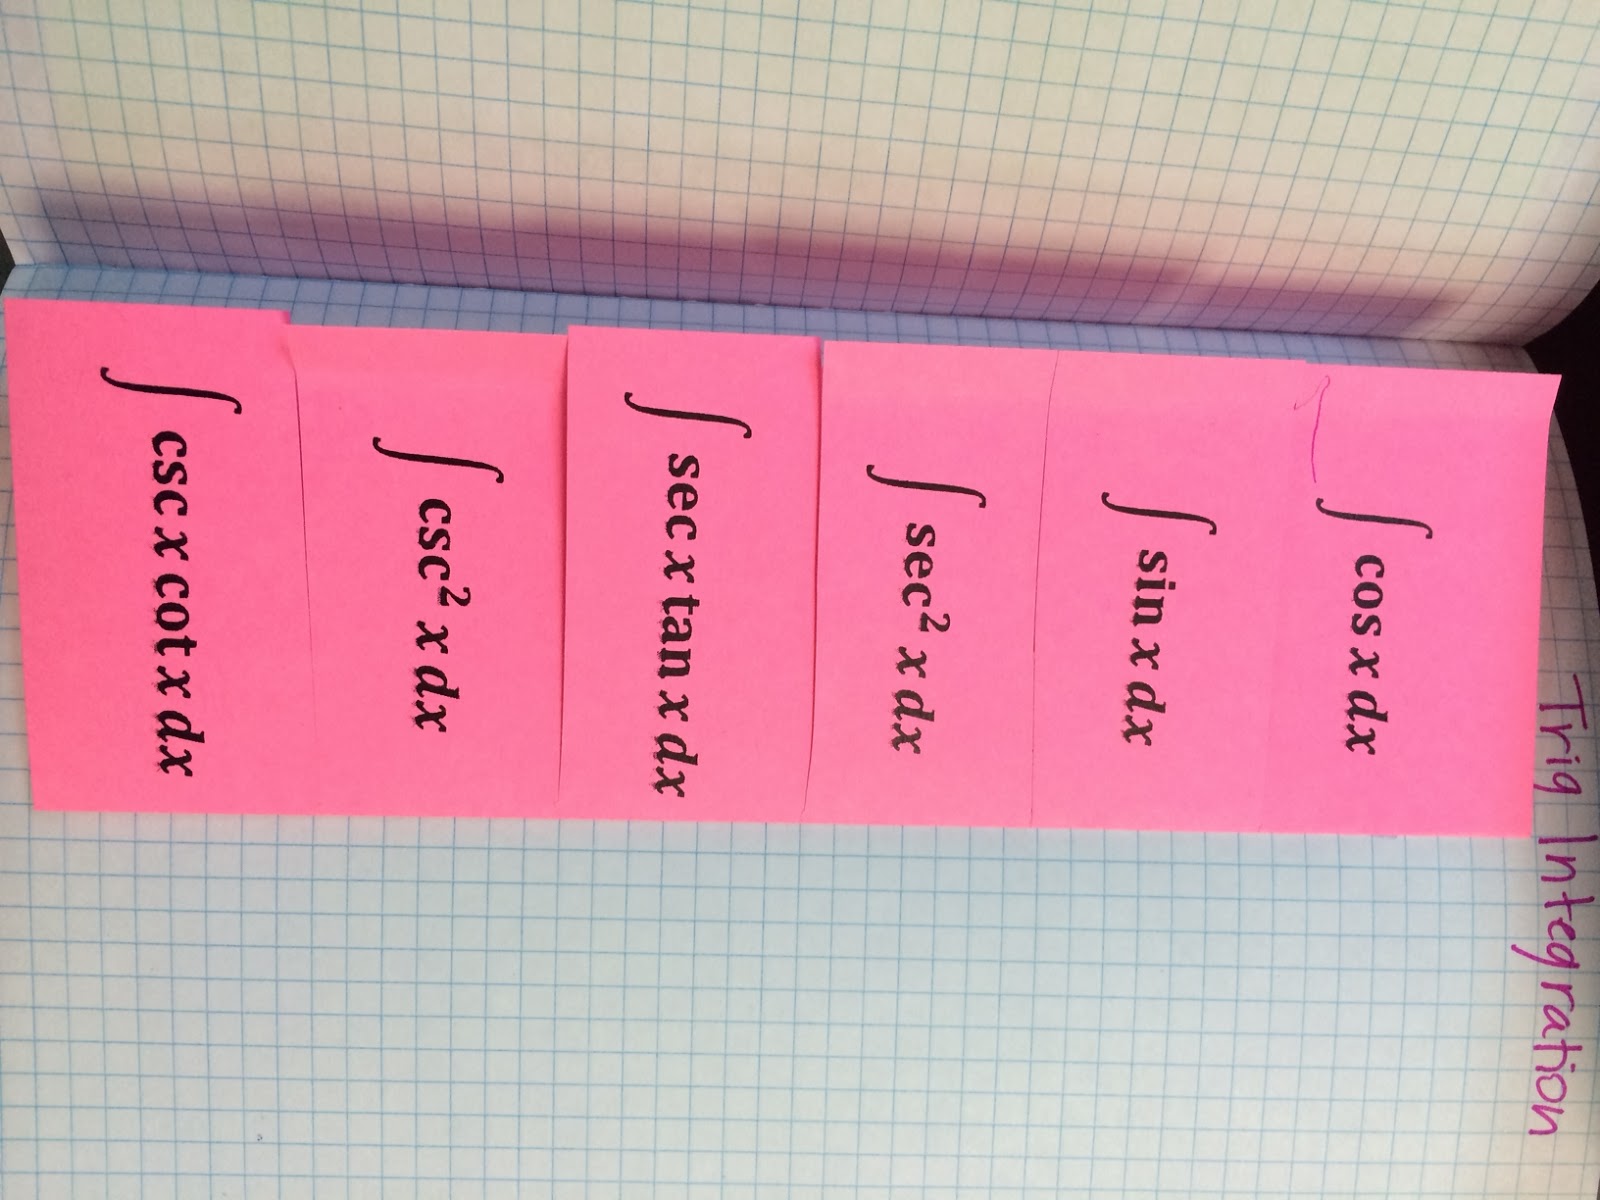 Trig Integration
∫ cos x dx
∫ sin x dx
∫ sec² x dx
∫ sec x tan x dx
∫ csc² x dx
∫ csc x cot x dx